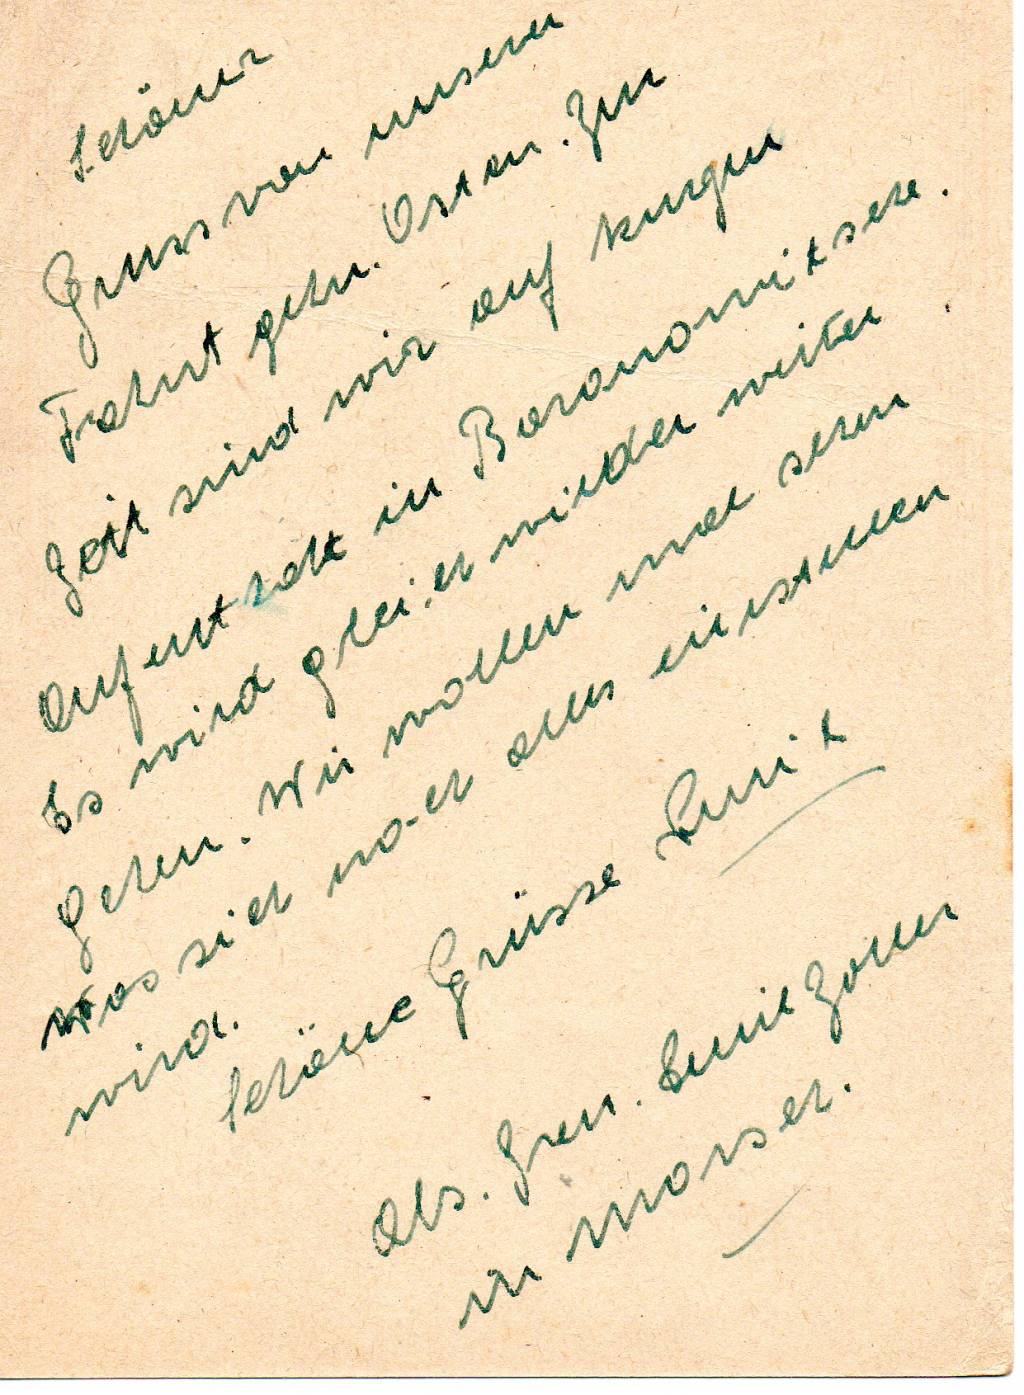 Schöner
Gruss von unserer
Fahrt gehn. Osten. Zur
Zeit sind wir auf kurzen
Aufenthalt in Baranowitsche.
Es wird gleich wieder weiter
gehen. Wir wollen mal sehen
was sich noch alles einstellen
wird.
Schöne Grüsse Emil
Abs. Gren. Emil Zoller
im Marsch.